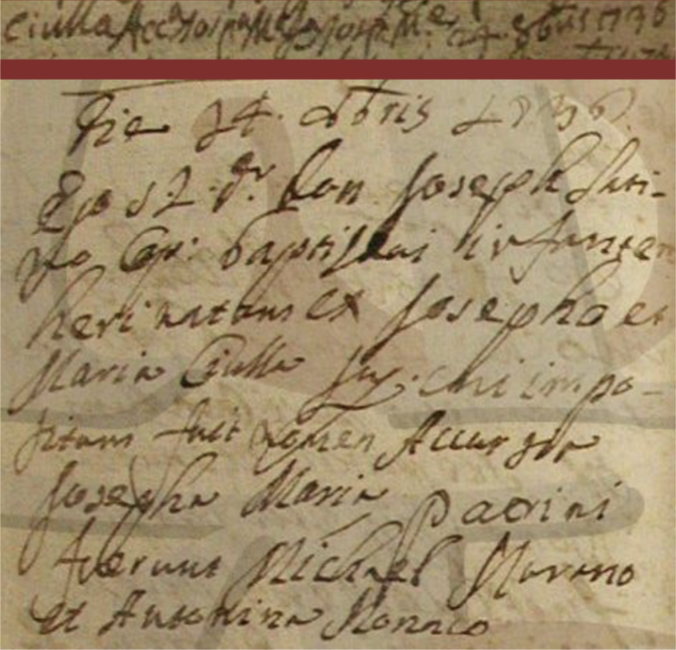 Ciulla Accursia M.a Joseph M.a 24. 8bris 1736
Die 24. 8bris 1736
Ego S.T.Dr. Don Joseph
Cap: baptizavi infantem
heri natam ex Josepho et
Maria Ciulla jug: cui impo-
situm fuit nomen Accursia
Josepha Maria Patrini
fuerunt Michael Moreno
et Antonina Monaco